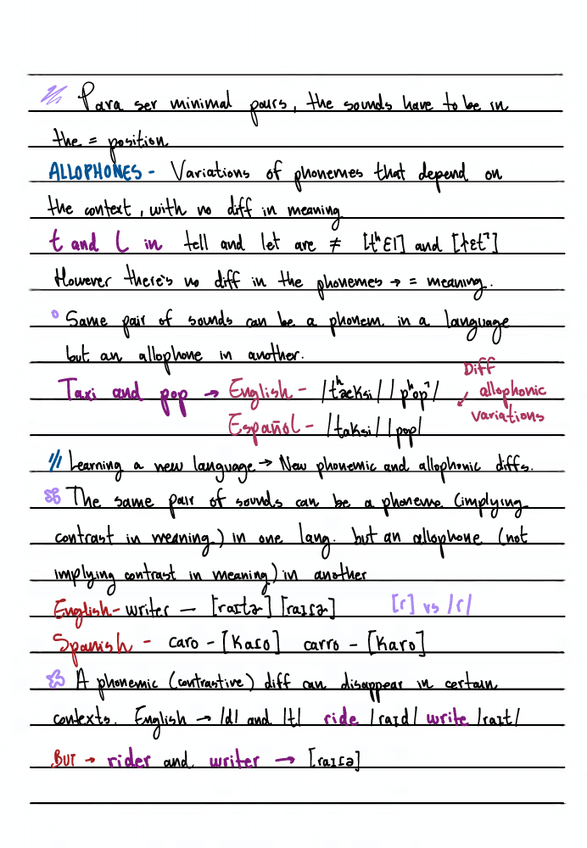 Para ser minimal pairs, the sounds have to be in
the = position
ALLOPHONES - Variations of phonemes that depend on
the context, with no diff in meaning
t and l in tell and let are ≠ [tʰɛl] and [ɫɛt˺]
However there's no diff in the phonemes → = meaning.
Same pair of sounds can be a phonem in a language
but an allophone in another.
Diff
Taxi and pop → English - /tʰæksi/ /pʰop˺/ ↙ allophonic
variations
Español - /taksi/ /pop/
Learning a new language → New phonemic and allophonic diffs.
The same pair of sounds can be a phoneme (implying
contrast in meaning) in one lang. but an allophone (not
implying contrast in meaning) in another
English - writer — [raɪtɚ] [raɪɾɚ] [r] vs /r/
Spanish - caro - [kaɾo] carro - [karo]
A phonemic (contrastive) diff can disappear in certain
contexts. English → /d/ and /t/ ride /raɪd/ write /raɪt/
BUT → rider and writer → [raɪɾə]